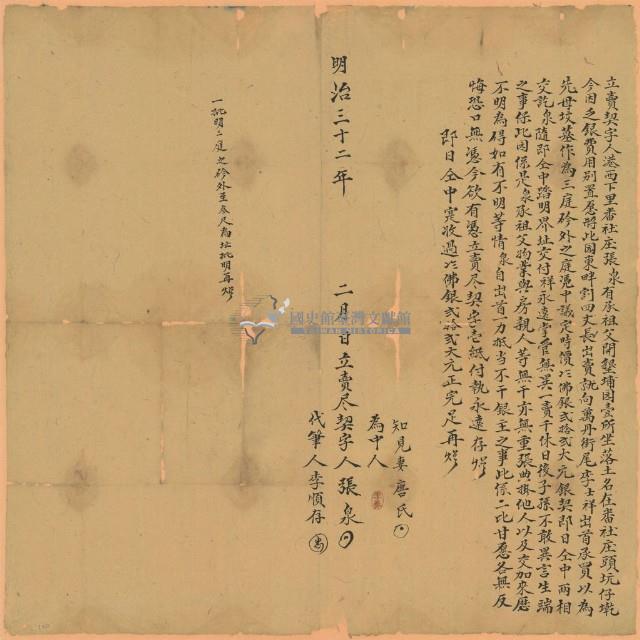 立賣契字人港西下里番社庄張泉有承祖父開墾埔園壹所坐落土名在番社庄頭坑仔墘
今因乏銀費用別置愿將此園東畔割四丈長出賣就向萬丹街尾李士祥出首承買以為
先母坟墓作為三庭砛外之庭憑中議定時價六八佛銀貳拾貳大元銀契即日仝中兩相
交訖泉隨即仝中踏明界址交付祥永遠掌管無異一賣千休日後子孫不敢異言生端
之事保此園係是泉承祖父物業與房親人等無干亦無重張典掛他人以及交加來歷
不明為碍如有不明等情泉自出首一力抵当不干銀主之事此係二比甘愿各無反
悔恐口無憑今欲有憑立賣尽契字壹紙付執永遠存炤
即日仝中寔收過六八佛銀貳拾貳大元正完足再炤
知見妻唐氏
為中人
明治三十二年 二月 日立賣尽契字人張泉
代筆人李順存
一批明二庭之砛外至叁尺為址批明再炤
國史館臺灣文獻館
TAIWAN HISTORICA